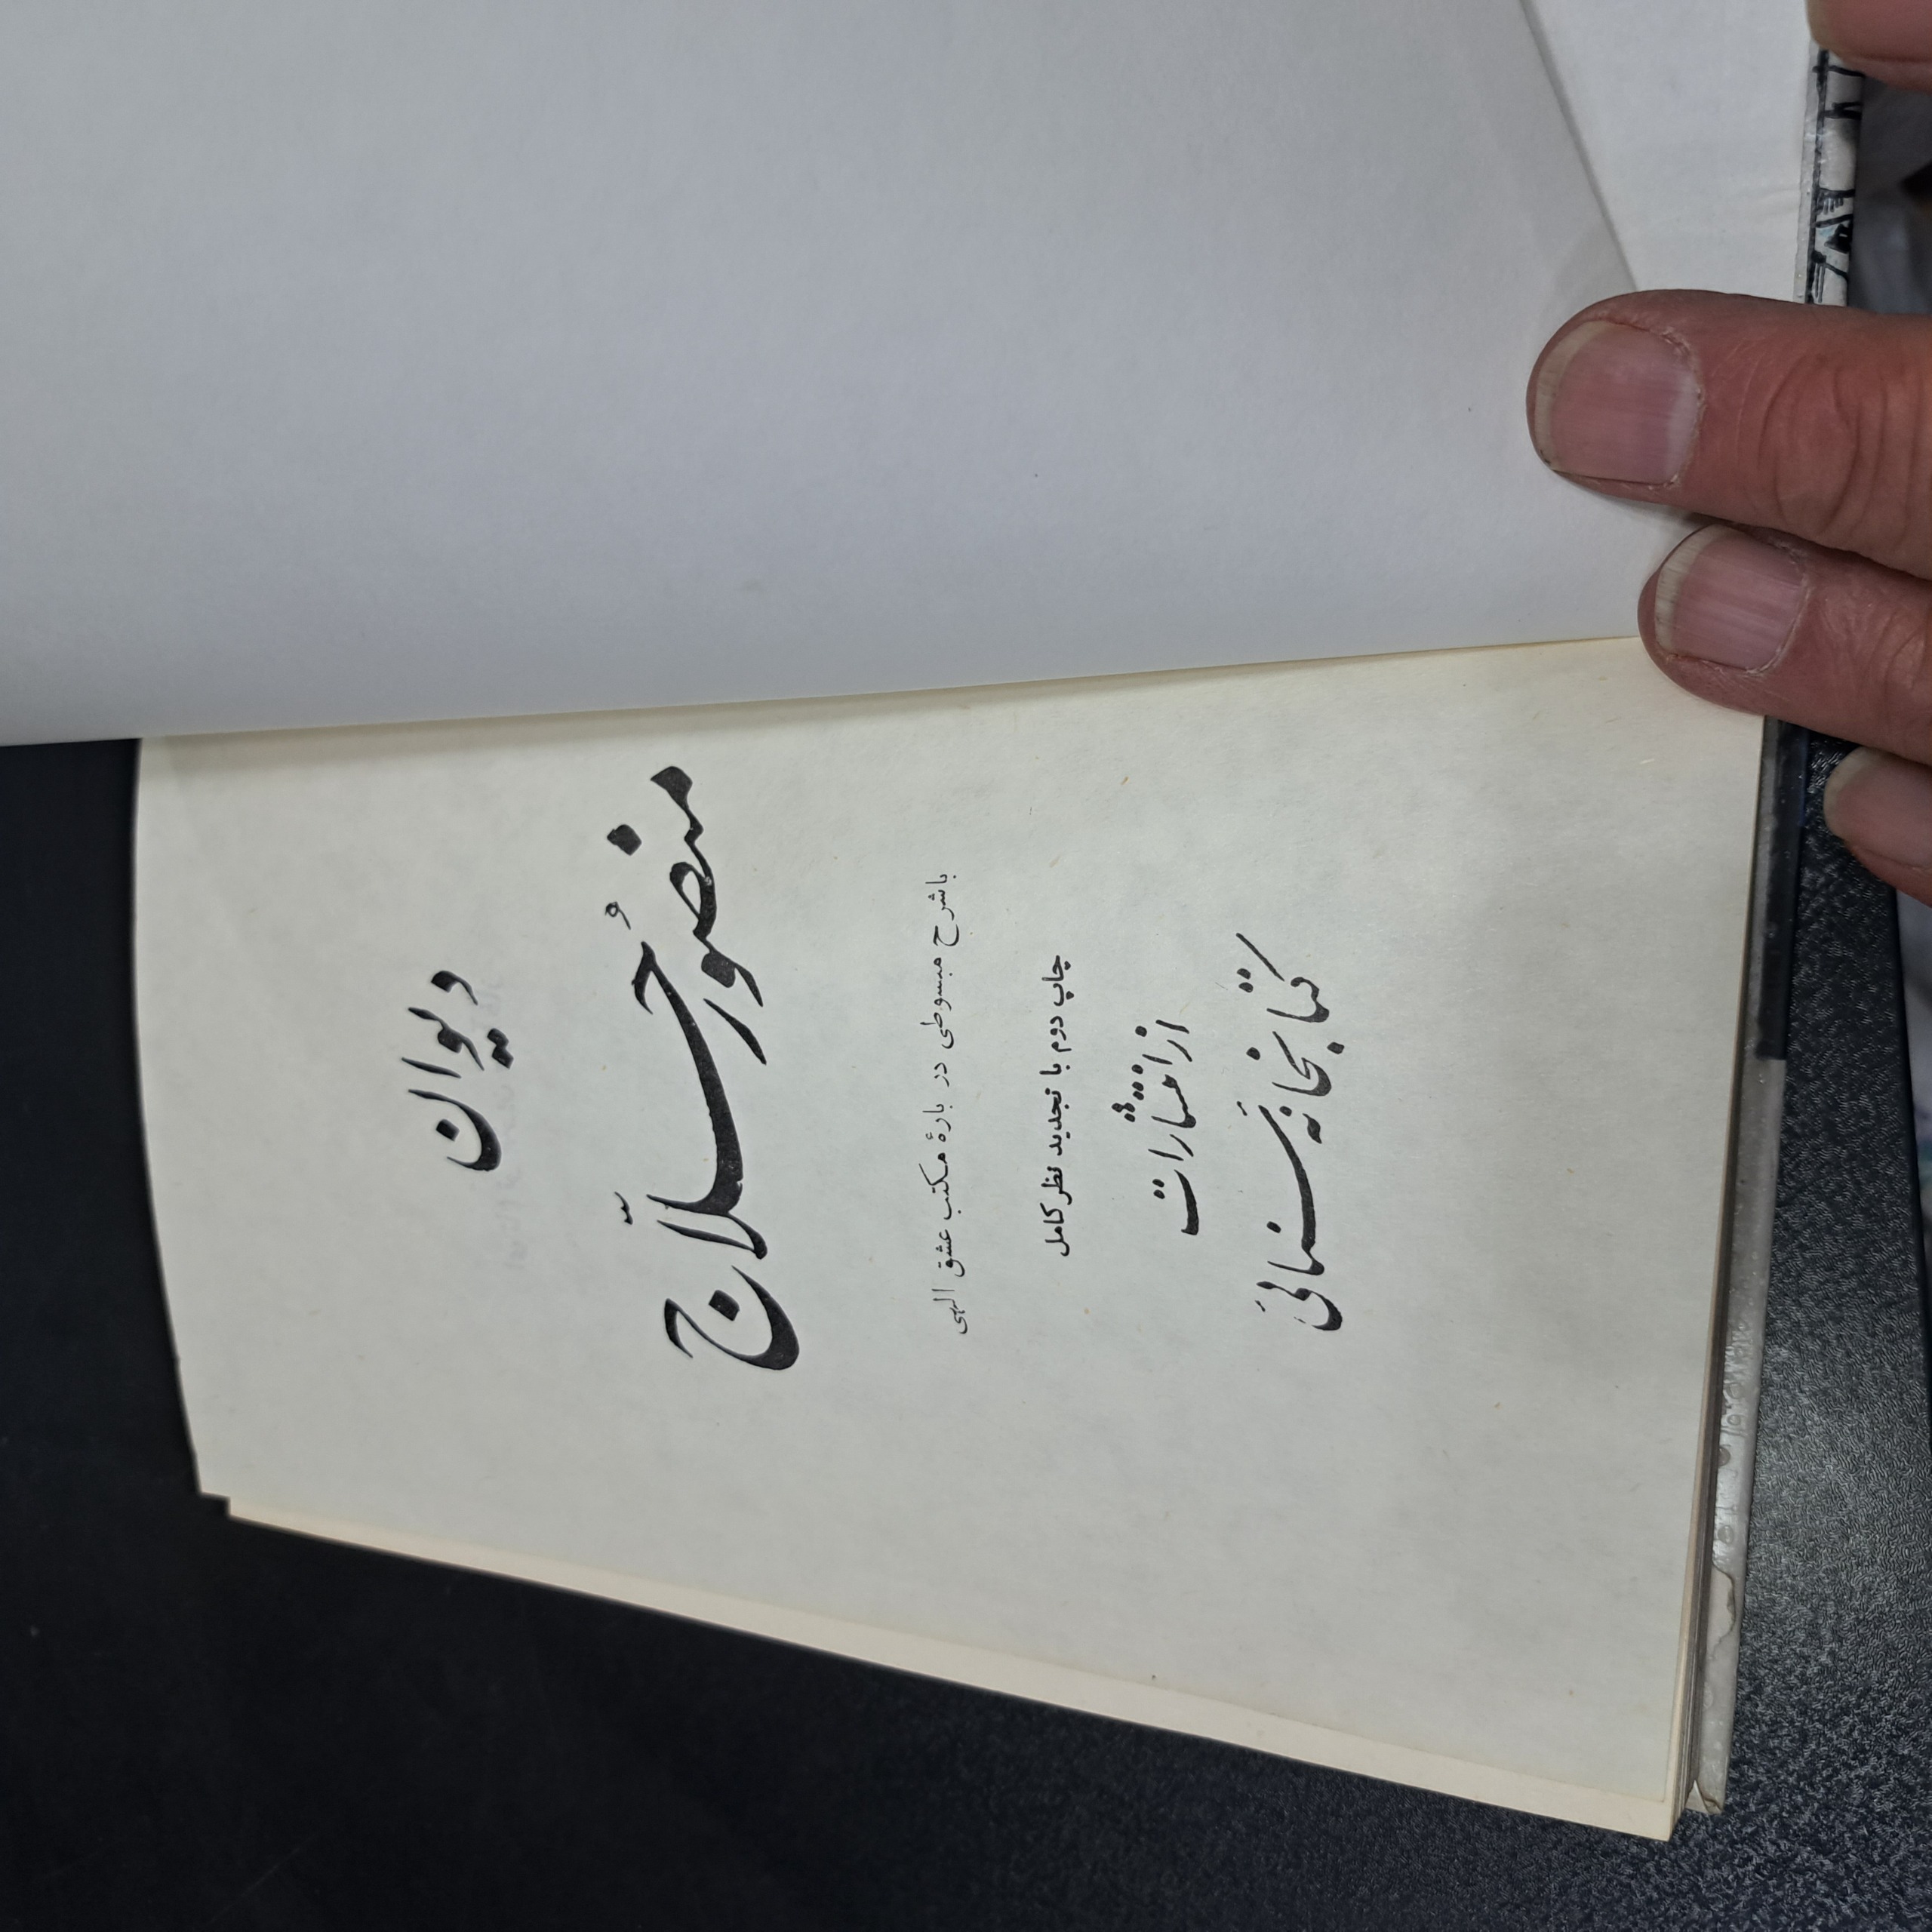 دیوان
منصور حُلّاج
با شرح مبسوطی در بارهٔ مکتب عشق الهی
چاپ دوم با تجدید نظر کامل
از انتشارات
کتابخانهٔ سنائی